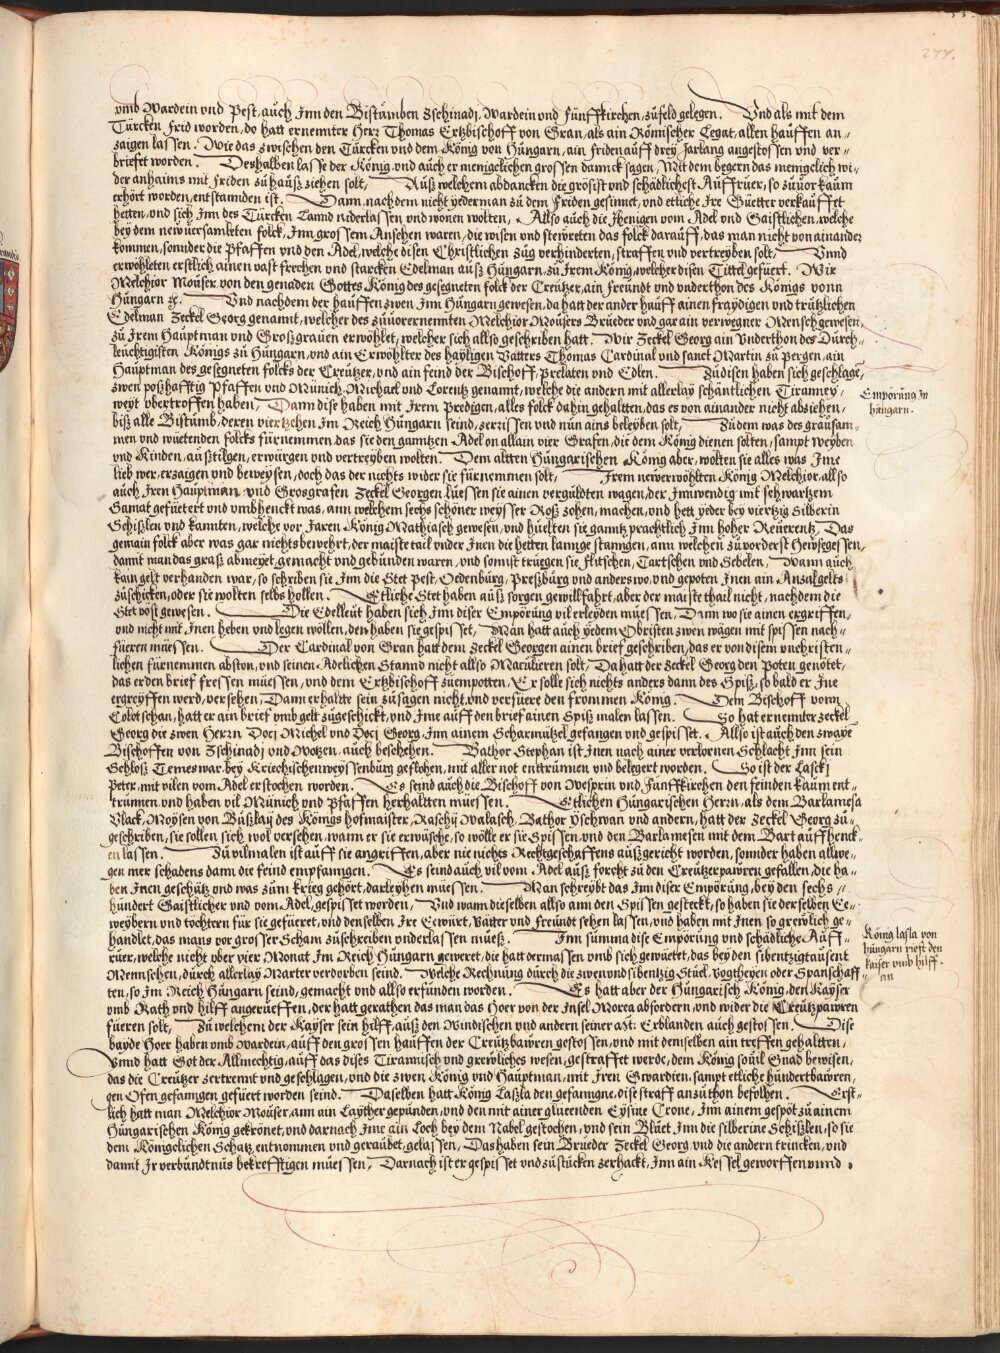 277.
vmb Wardein vnd Pest, auch Jnn den Bistumben Zschinadj, Wardein vnd Fünffkirchen, zů feld gelegen. Vnd als mit dem
Türcken frid worden, do hatt ernennter Herr Thomas Ertzbischoff von Gran, als ain Römischer Legat, allen hauffen an-
zaigen lassen. Wie das zwischen den Türcken vnd dem König von Hungarn, ain friden auff drey Jarlang angestossen vnd ver-
briefet worden. Deshalben lasse der König, vnd auch er menigclichen grossen danck sagen, Mit dem begern das menigclich wi-
der anhaims mit friden zů hauß ziehen solt, Auß welchem abdancken die gröst vnd schädlichest Auffrůer, so zůuor kaum
erhört worden, entstannden ist. Dann, nachdem nicht yederman zů dem friden gesinnet, vnd etliche Jre Güetter verkaufft
hetten, vnd sich Jnn des Türcken Lannd niderlassen vnd wonen wolten, Allso auch die Jhenigen vom Adel vnd Gaistlichen, welche
bey dem neuuersamleten folck, Jnn grossem Ansehen waren, die wisen vnd steureten das folck darauff, das man nicht von ainander
kommen, sonnder die Pfaffen vnd den Adel, welche disen Christlichen zug verhinderten, straffen vnd vertreyben solt, Vnnd
erwöhleten erstlich ainen vast frechen vnd starcken Edelman auß Hungarn, zů Jrem König, welcher disen Tittel gefüert. Wir
Melchior Mouser, von den genaden Gottes König des gesegneten folck der Creützer, ain freündt vnd vnderthon des Königs vonn
Hungarn ꝛc. Vnd nachdem der hauffen zwen Jnn Hungarn gewesen, da hatt der ander hauff ainen fraydigen vnd trützlichen
Edelman Zeckel Georg genannt, welcher des zůuorernennten Melchior Mousers Brueder vnd gar ain verwegner Mensch gewesen,
zů Jrem Hauptman vnd Großgrauen erwöhlet, welcher sich allso geschriben hatt. Wir Zeckel Georg ain Vnderthon des Durch-
leüchtigisten Königs zů Hungarn, vnd ain Erwöhlter des hayligen Vatters Thomas Cardinal vnd sanct Martin zů Pergen, ain
Hauptman des gesegneten folcks der Creützer, vnd ain feind der Bischoff, Prelaten vnd Edlen. Zů disen haben sich geschlagē,
zwen boßhafftig Pfaffen vnd Münich, Michael vnd Lorentz genannt, welche die andern mit allerlay schäntlichen Tiranney,
weyt vbertroffen haben, Dann dise haben mit Jrem Predigen, alles folck dahin gehaltten, das es von ainander nicht abziehen,
biß alle Bistumb, deren viertzehen Jm Reich Hungarn seind, zerrissen vnd nun ains beleyben solt, Zůdem was des grausam-
men vnd wüetenden folcks fürnemmen, das sie den ganntzen Adel on allain vier Grafen, die dem König dienen solten, sampt weyben
vnd Kinden, außtilgen, erwürgen vnd vertreyben wolten. Dem altten Hungarischen König aber, wolten sie alles was Jme
lieb wer, erzaigen vnd beweysen, doch das der nichts wider sie fürnemmen solt, Jrem neuerwöhlten König Melchior, allso
auch Jren Hauptman vnd Grosgrafen Zeckel Georgen, liessen sie ainen verguldten wagen, der Jnnwendig mit schwartzem
Samat gefüetert vnd vmbhenckt was, ann welchem sechs schöner weysser Roß zohen, machen, vnd hett yeder bey viertzig Silberin
Schißlen vnd kannten, welche vor Jaren König Mathiasch gewesen, vnd hielten sie ganntz prachtlich Jnn hoher Reuerentz, Das
gemain folck aber was gar nichts bewehrt, der maiste tail vnder Jnen die hetten lannge stanngen, ann welchen zů vorderst Hewsegessen,
damit man das graß abmeyet, gemacht vnd gebunden waren, vnd sonnst truegen sie, flitschen, Tartschen vnd Sebelen, Wann auch
kain gelt verhanden war, so schriben sie Jnn die Stet Pest, Oedenburg, Preßburg vnd anderswo, vnd gepoten Jnen ain Anzal gelts
zůschicken, oder sie wolten selbs hollen. Etliche Stet haben auß sorgen gewillfahrt, aber der maiste thail nicht, nachdem die
Stet vöst gewesen. Die Edelleüt haben sich Jnn diser Empörung vil erleyden müessen, Dann wo sie ainen ergriffen,
vnd nicht mit Jnen heben vnd legen wöllen, den haben sie gespisset, Man hatt auch yedem Obristen zwen wägen mit spissen nach-
füeren müessen. Der Cardinal von Gran hatt dem Zeckel Georgen ainen brief geschriben, das er von disem vnchristen-
lichen fürnemmen abston, vnd seinen Adelichen Stannd nicht allso Maculieren solt, Da hatt der Zeckel Georg den Poten genötet,
das er den brief fressen müessen, vnd dem Ertzbischoff zůempotten, Er solle sich nichts anders dann des Spiß, so bald er Jne
ergreyffen werd, versehen, Dann er haltte sein zůsagen nicht, vnd verfüere den frommen König. Dem Bischoff vonn
Colotschan, hatt er ain brief vmb gelt zůgeschickt, vnd Jme auff den brief ainen Spiß malen lassen. So hat ernennter Zeckel
Georg die zwen Herrn Docj Michel vnd Docj Georg, Jnn ainem Scharmützel gefangen vnd gespisset. Allso ist auch den zwayē
Bischoffen von Zschinadj vnd Wotzen, auch beschehen. Bathor Stephan ist Jnen nach ainer verlornen Schlacht Jnn sein
Schloß Temeswar, bey Kriechischenweyssenburg geflohen, mit aller not enttrunnen vnd belegert worden. So ist der Lasckj
Peter, mit vilen vom Adel erstochen worden. Es seind auch die Bischoff von Wesprin vnd Fünffkirchen den feinden kaum ent-
trunnen vnd haben vil Münich vnd Pfaffen herhaltten müessen. Etlichen Hungarischen Herrn, als dem Barlamesa
Vlack, Moysen von Bußlaij des Königs Hofmaister, Raschij Walasch, Bathor Yschrwan vnd andern, hatt der Zeckel Georg zů-
geschriben, sie sollen sich wol versehen, wann er sie erwüsche, so wölle er sie Spissen, vnd den Barlamesen mit dem Bart auffhenck-
en lassen. Zů vilmalen ist auff sie angriffen, aber nie nichts Rechtgeschaffens außgericht worden, sonnder haben allwe-
gen mer schadens dann die feind empfanngen. Es seind auch vil vom Adel auß forcht zů den Creützerpawren gefallen, die ha-
ben Jnen geschütz vnd was zum krieg gehört, darleyhen müessen. Man schreybt das Jnn diser Empörung, bey den sechs-
hundert Gaistlicher vnd vom Adel, gespisset worden, Vnd wann dieselben allso ann den Spissen gesteckt, so haben sie derselben Ee-
weybern vnd töchtern für sie gefüeret, vnd denselben Jre Eewürt, Vätter vnd freundt sehen lassen, vnd haben mit Jnen so grewlich ge-
handlet, das mans vor grosser Scham zůschreiben vnderlassen müeß. Jnn summa dise Empörung vnd schädliche Auff-
rüer, welche nicht vber vier Monat Jm Reich Hungarn geweret, die hatt dermassen vmb sich gewüetet, das bey den sibentzigtausent
Mennschen, durch allerlay Marter verdorben seind. Welche Rechnung durch die zwenvndsibentzig Stuel, Vogtheyen oder Spanschaff-
ten, so Jm Reich Hungarn seind, gemacht vnd allso erfunden worden. Es hatt aber der Hungarisch König, den Kayser
vmb Rath vnd hilff angerüeffen, der hatt gerathen das man das Hoer von der Jnsel Morea abfordern, vnd wider die Creützpawren
füeren solt, Zů welchem der Kayser sein hilff, auß den Windischen vnd andern seiner Mt: Erblanden auch gestossen. Dise
bayde Hoer haben vmb Wardein, auff den grossen hauffen der Creützbawren gestossen, vnd mit demselben ain treffen gehaltten,
Vnnd hatt Got der Allmechtig, auff das dises Tirannisch vnd grewliches wesen, gestraffet werde, dem König souil Gnad bewisen,
das die Creützer zertrennt vnd geschlagen, vnd die zwen König vnd Hauptman, mit Jren Gwardien, sampt etliche hundertbawren,
gen Ofen gefanngen gefüert worden seind. Daselben hatt König Laßla den gefanngne, dise straff anzůthon befolhen. Erst-
lich hatt man Melchior Mouser, ann ain Layther gepunden, vnd den mit ainer glüeenden Eysine Crone, Jnn ainem gespöt zů ainem
Hungarischen König gekrönet, vnd darnach Jme ain Loch bey dem Nabel gestochen, vnd sein Blüet Jnn die silberine Schißlen, so sie
dem Königclichen Schatz entnommen vnd geraubet, gelassen, Das haben sein Brueder Zeckel Georg vnd die andern trincken, vnd
damit Jr verbündtnus bekrefftigen müessen, Darnach ist er gespisset vnd zů stücken zerhackt, Jnn ain Kessel geworffen vnnd
Empörung Jn
hungarn.
König lasla von
hungarn riefft den
kaiser vmb hilff
an